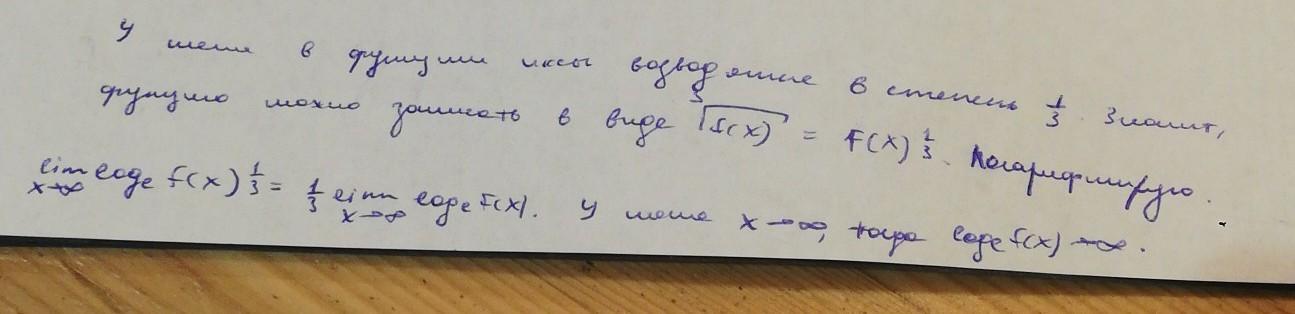 У меня в функции иксы возводятся в степень 1/3. Значит,
функцию можно записать в виде ∛f(x) = f(x)^{1/3}. Логарифмирую.
lim_{x→∞} log_e f(x)^{1/3} = 1/3 lim_{x→∞} log_e f(x). У меня x→∞, тогда log_e f(x)→∞.